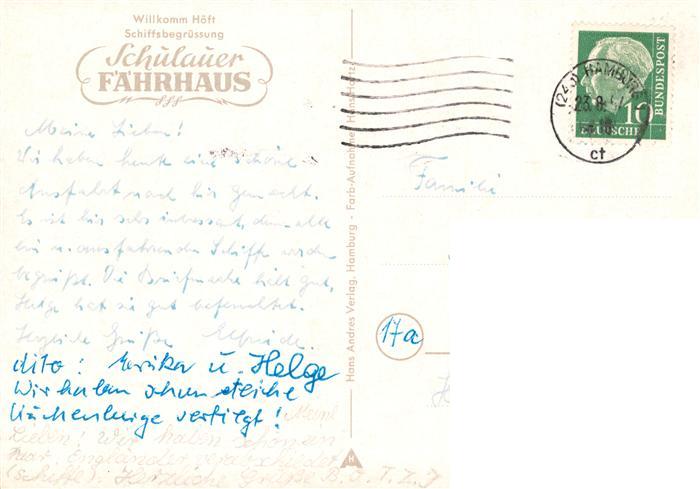 Willkomm Höft
Schiffsbegrüssung
Schulauer
FÄHRHAUS
Meine Lieben!
Wir haben heute eine schöne
Ausfahrt nach hier gemacht.
Es ist hier sehr interessant, denn alle
ein u. ausfahrenden Schiffe werden
begrüßt. Die Briefmasche hält gut,
Helge hat sie gut befeuchtet.
Herzliche Grüße Elfriede.
dito: Monika u. Helge
Wir haben schon etliche
Kuchenberge vertilgt!
Meine
Lieben! Wir haben schon ein
paar Engländer verabschiedet
(Schiffe). Herzliche Grüße B. J. T. Z. J
Hans Andres Verlag, Hamburg - Farb-Aufnahme: Hans Hartz
H
(24a) HAMBURG
23.8.57
ct
10
DEUTSCHE
BUNDESPOST
Familie
17a